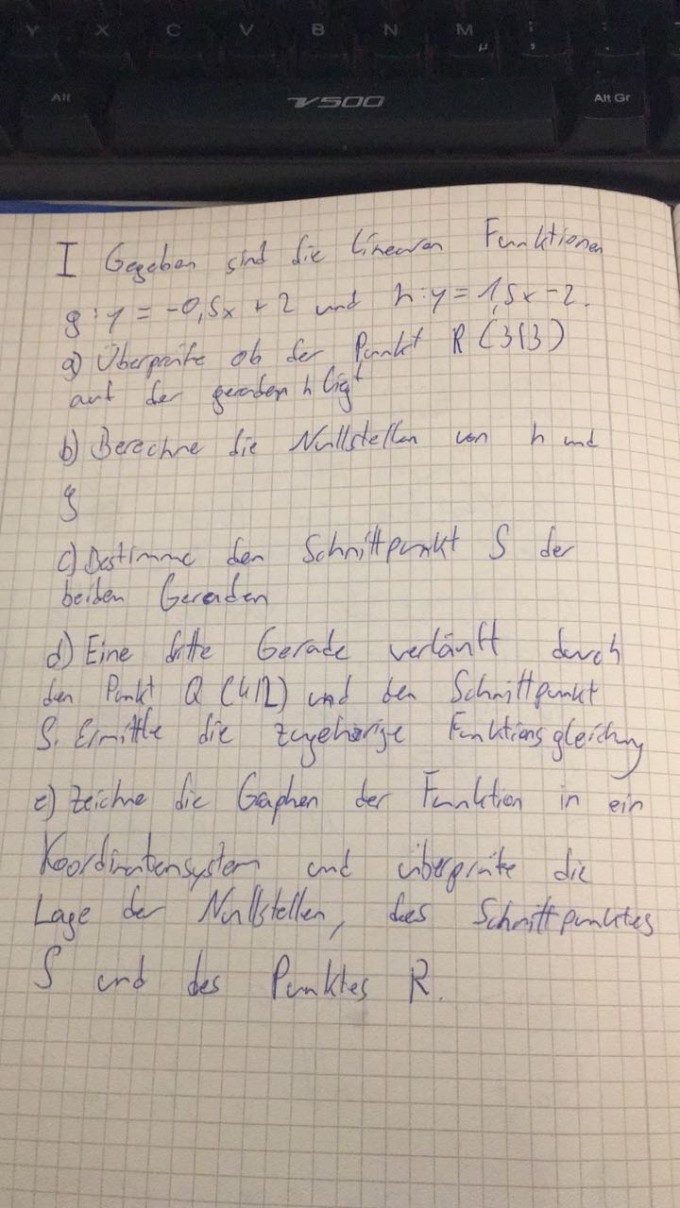 Y X C V B N M ; :
µ ,
Alt V500 Alt Gr
I Gegeben sind die linearen Funktionen
g:y = -0,5x + 2 und h:y = 1,5x - 2.
a) Überprüfe ob der Punkt R (3|3)
auf der geraden h ligt
b) Berechne die Nullstellen von h und
g
c) Bestimme den Schnittpunkt S der
beiden Geraden
d) Eine dritte Gerade verläuft durch
den Punkt Q (4|2) und den Schnittpunkt
S. Ermittle die zugehörige Funktionsgleichung
e) Zeichne die Graphen der Funktion in ein
Koordinatensystem und überprüfe die
Lage der Nullstellen, des Schnittpunktes
S und des Punktes R.